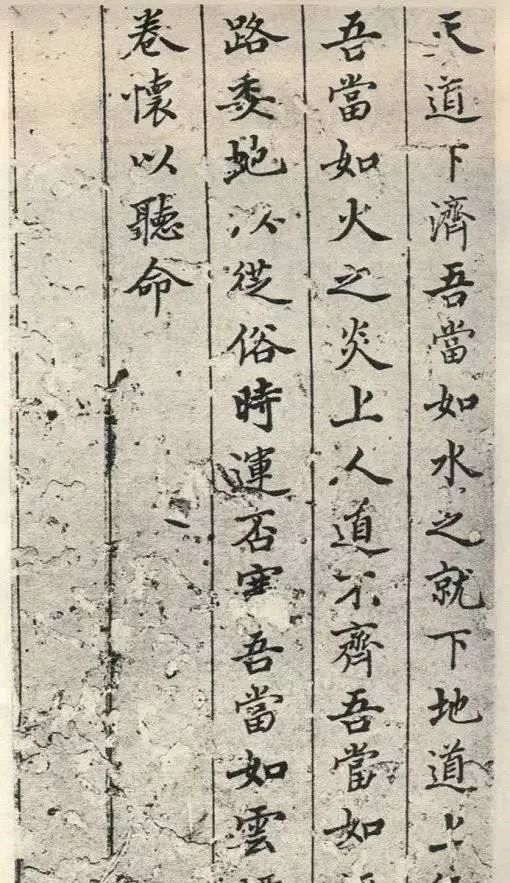 天道下濟吾當如水之就下地道上
吾當如火之炎上人道不齊吾當如
路委地以從俗時運否塞吾當如雲
卷懷以聽命